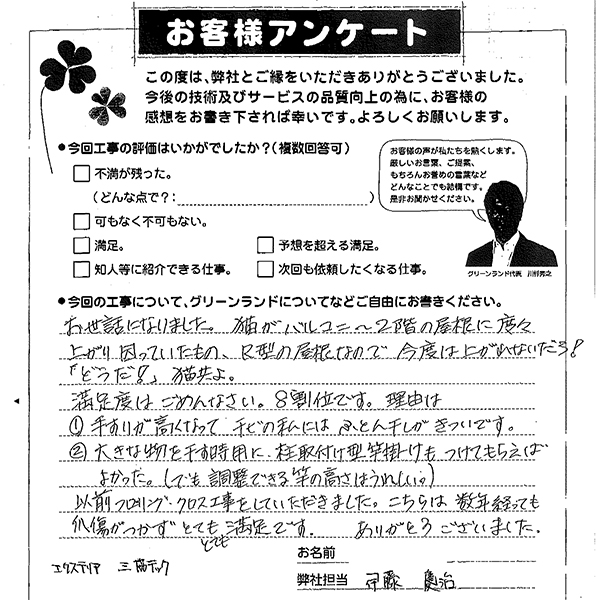 お客様アンケート
この度は、弊社とご縁をいただきありがとうございました。
今後の技術及びサービスの品質向上の為に、お客様の
感想をお書き下されば幸いです。よろしくお願いします。
●今回工事の評価はいかがでしたか?(複数回答可)
不満が残った。
(どんな点で?:)
可もなく不可もない。
満足。
予想を超える満足。
知人等に紹介できる仕事。
次回も依頼したくなる仕事。
お客様の声が私たちを熱くします。
厳しいお言葉、ご提案、
もちろんお誉めの言葉など
どんなことでも結構です。
是非お聞かせください。
グリーンランド代表
●今回の工事について、グリーンランドについてなどご自由にお書きください。
お世話になりました。猫がバルコニー〜2階の屋根に度々
上がり困っていたもの、R型の屋根なので今度は上がれないだろ!
「どうだ!」猫共よ。
満足度はごめんなさい。8割位です。理由は
①手すりが高くなってチビの私にはふとん干しがきついです。
②大きな物を干す時用に柱取付け型竿掛けもつけてもらえば
よかった。(でも調整できる竿の高さはうれしい。)
以前フロリング・クロス工事をしていただきました。こちらは数年経っても
傷がつかずとても満足です。ありがとうございました。
とても
お名前
エクステリア 三協
弊社担当 伊藤